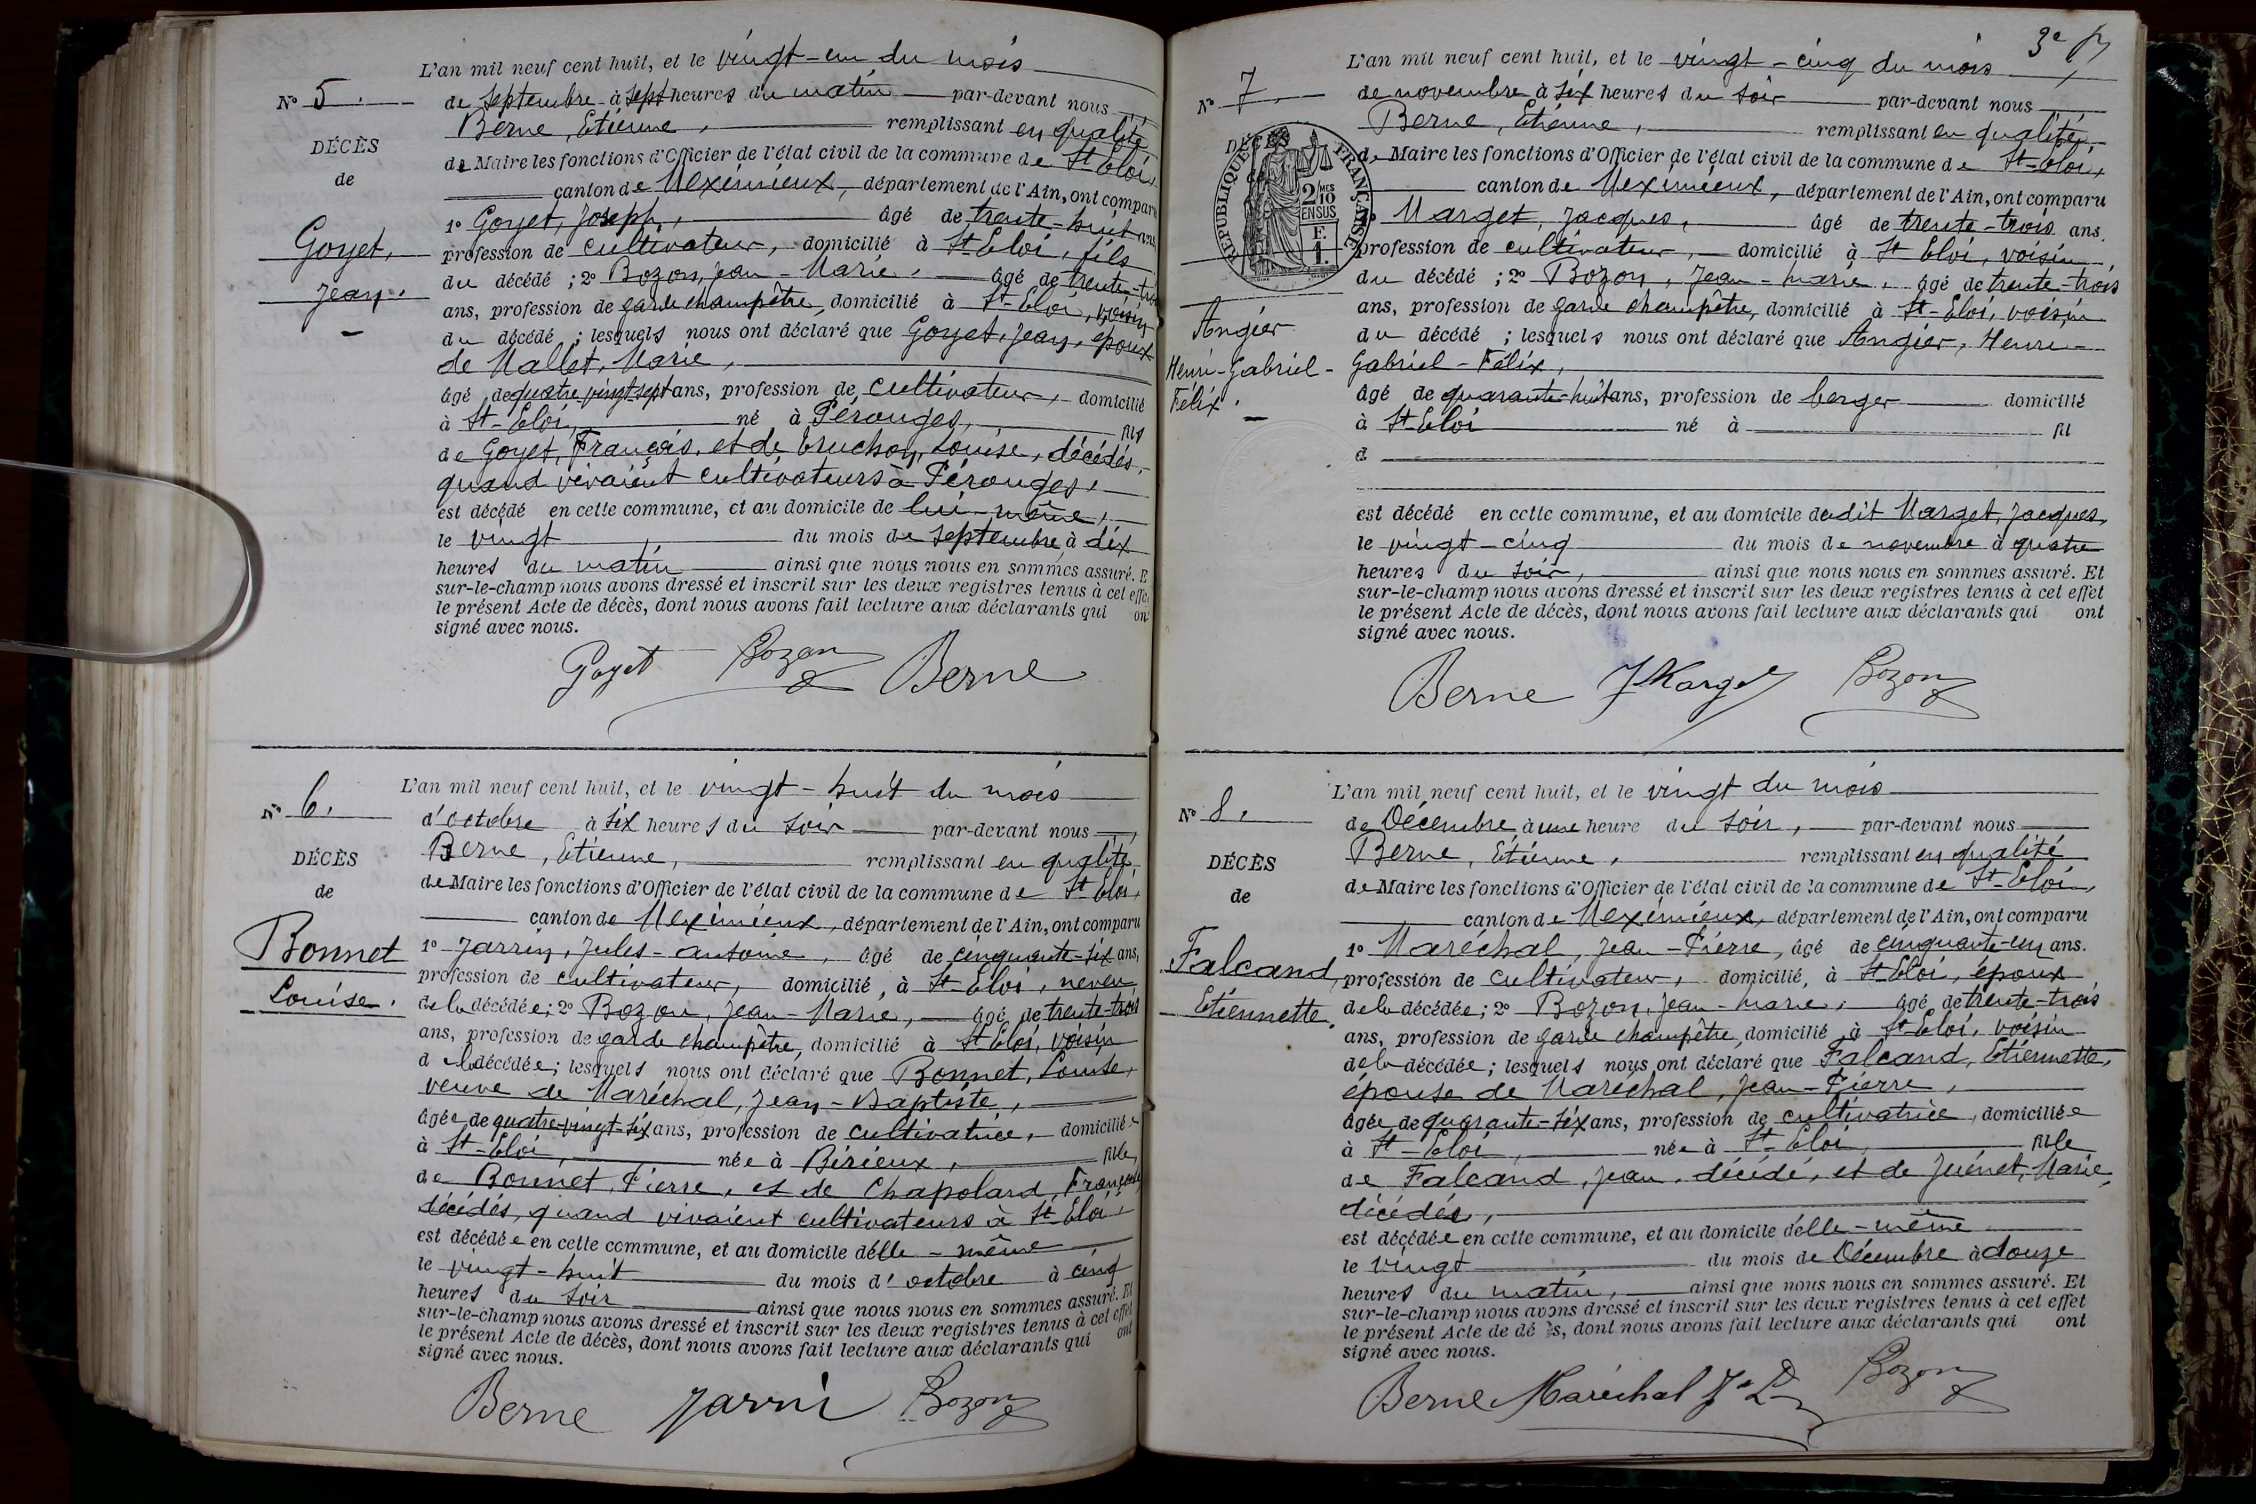 L'an mil neuf cent huit, et le vingt-un du mois
No 5.
de septembre à sept heures du matin par-devant nous
Berne, Etienne, remplissant en qualité
DÉCÈS
de Maire les fonctions d'Officier de l'état civil de la commune de St-Eloi,
de
canton de Meximieux, département de l'Ain, ont comparu
1o Goyet, Joseph, âgé de trente-huit ans,
Goyet,
profession de cultivateur, domicilié à St-Eloi, fils
du décédé; 2o Bozon, Jean-Marie, âgé de trente-trois
Jean.
ans, profession de garde champêtre, domicilié à St-Eloi, voisin
du décédé; lesquels nous ont déclaré que Goyet, Jean, époux
de Mallet, Marie,
âgé de quatre-vingt-sept ans, profession de cultivateur, domicilié
à St-Eloi, né à Pérouges, fils
de Goyet, François, et de Truchon, Louise, décédés,
quand vivaient cultivateurs à Pérouges,
est décédé en cette commune, et au domicile de lui-même,
le vingt du mois de septembre à dix
heures du matin ainsi que nous nous en sommes assuré. E
sur-le-champ nous avons dressé et inscrit sur les deux registres tenus à cet effet
le présent Acte de décès, dont nous avons fait lecture aux déclarants qui ont
signé avec nous.
Goyet Bozon Berne
L'an mil neuf cent huit, et le vingt-huit du mois
No 6.
d'octobre à six heures du soir par-devant nous
Berne, Etienne, remplissant en qualité
DÉCÈS
de Maire les fonctions d'Officier de l'état civil de la commune de St-Eloi,
de
canton de Meximieux, département de l'Ain, ont comparu
Bonnet
1o Jarrin, Jules-Antoine, âgé de cinquante-six ans,
profession de cultivateur, domicilié, à St-Eloi, neveu
Louise.
de la décédée; 2o Bozon, Jean-Marie, âgé de trente-trois
ans, profession de garde champêtre, domicilié à St-Eloi, voisin
de la décédée; lesquels nous ont déclaré que Bonnet, Louise,
veuve de Maréchal, Jean-Baptiste,
âgée de quatre-vingt-six ans, profession de cultivatrice, domiciliée
à St-Eloi, née à Birieux, fille
de Bonnet, Pierre, et de Chapolard, Françoise,
décédés, quand vivaient cultivateurs à St-Eloi,
est décédée en cette commune, et au domicile d'elle-même
le vingt-huit du mois d'octobre à cinq
heures du soir ainsi que nous nous en sommes assuré. Et
sur-le-champ nous avons dressé et inscrit sur les deux registres tenus à cet effet
le présent Acte de décès, dont nous avons fait lecture aux déclarants qui ont
signé avec nous.
Berne Jarrin Bozon
3e
L'an mil neuf cent huit, et le vingt-cinq du mois
No 7.
de novembre à six heures du soir par-devant nous
Berne, Etienne, remplissant en qualité
DÉCÈS
de Maire les fonctions d'Officier de l'état civil de la commune de St-Eloi,
RÉPUBLIQUE FRANÇAISE
2/10 MES
EN SUS
F.
1.
canton de Meximieux, département de l'Ain, ont comparu
Marget, Jacques, âgé de trente-trois ans.
profession de cultivateur, domicilié à St Eloi, voisin
du décédé; 2o Bozon, Jean-Marie, âgé de trente-trois
ans, profession de garde champêtre, domicilié à St-Eloi, voisin
Angier
du décédé; lesquels nous ont déclaré que Angier, Henri-
Henri-Gabriel-
Gabriel-Félix,
Félix.
âgé de quarante-huit ans, profession de berger domicilié
à St-Eloi né à fil
d
est décédé en cette commune, et au domicile dudit Marget, Jacques,
le vingt-cinq du mois de novembre à quatre
heures du soir, ainsi que nous nous en sommes assuré. Et
sur-le-champ nous avons dressé et inscrit sur les deux registres tenus à cet effet
le présent Acte de décès, dont nous avons fait lecture aux déclarants qui ont
signé avec nous.
Berne J Marget Bozon
L'an mil neuf cent huit, et le vingt du mois
No 8.
de Décembre à une heure du soir, par-devant nous
Berne, Etienne, remplissant en qualité
DÉCÈS
de Maire les fonctions d'Officier de l'état civil de la commune de St-Eloi,
de
canton de Meximieux, département de l'Ain, ont comparu
1o Maréchal, Jean-Pierre, âgé de cinquante-un ans.
Falcand,
profession de cultivateur, domicilié, à St Eloi, époux
Etiennette.
de la décédée; 2o Bozon, Jean-Marie, âgé de trente-trois
ans, profession de garde champêtre, domicilié à St-Eloi, voisin
de la décédée; lesquels nous ont déclaré que Falcand, Etiennette,
épouse de Maréchal, Jean-Pierre,
âgée de quarante-six ans, profession de cultivatrice, domiciliée
à St-Eloi, née à St-Eloi, fille
de Falcand, Jean, décédé, et de Juénet, Marie,
décédée,
est décédée en cette commune, et au domicile d'elle-même
le vingt du mois de Décembre à douze
heures du matin, ainsi que nous nous en sommes assuré. Et
sur-le-champ nous avons dressé et inscrit sur les deux registres tenus à cet effet
le présent Acte de dé ès, dont nous avons fait lecture aux déclarants qui ont
signé avec nous.
Berne Maréchal Bozon